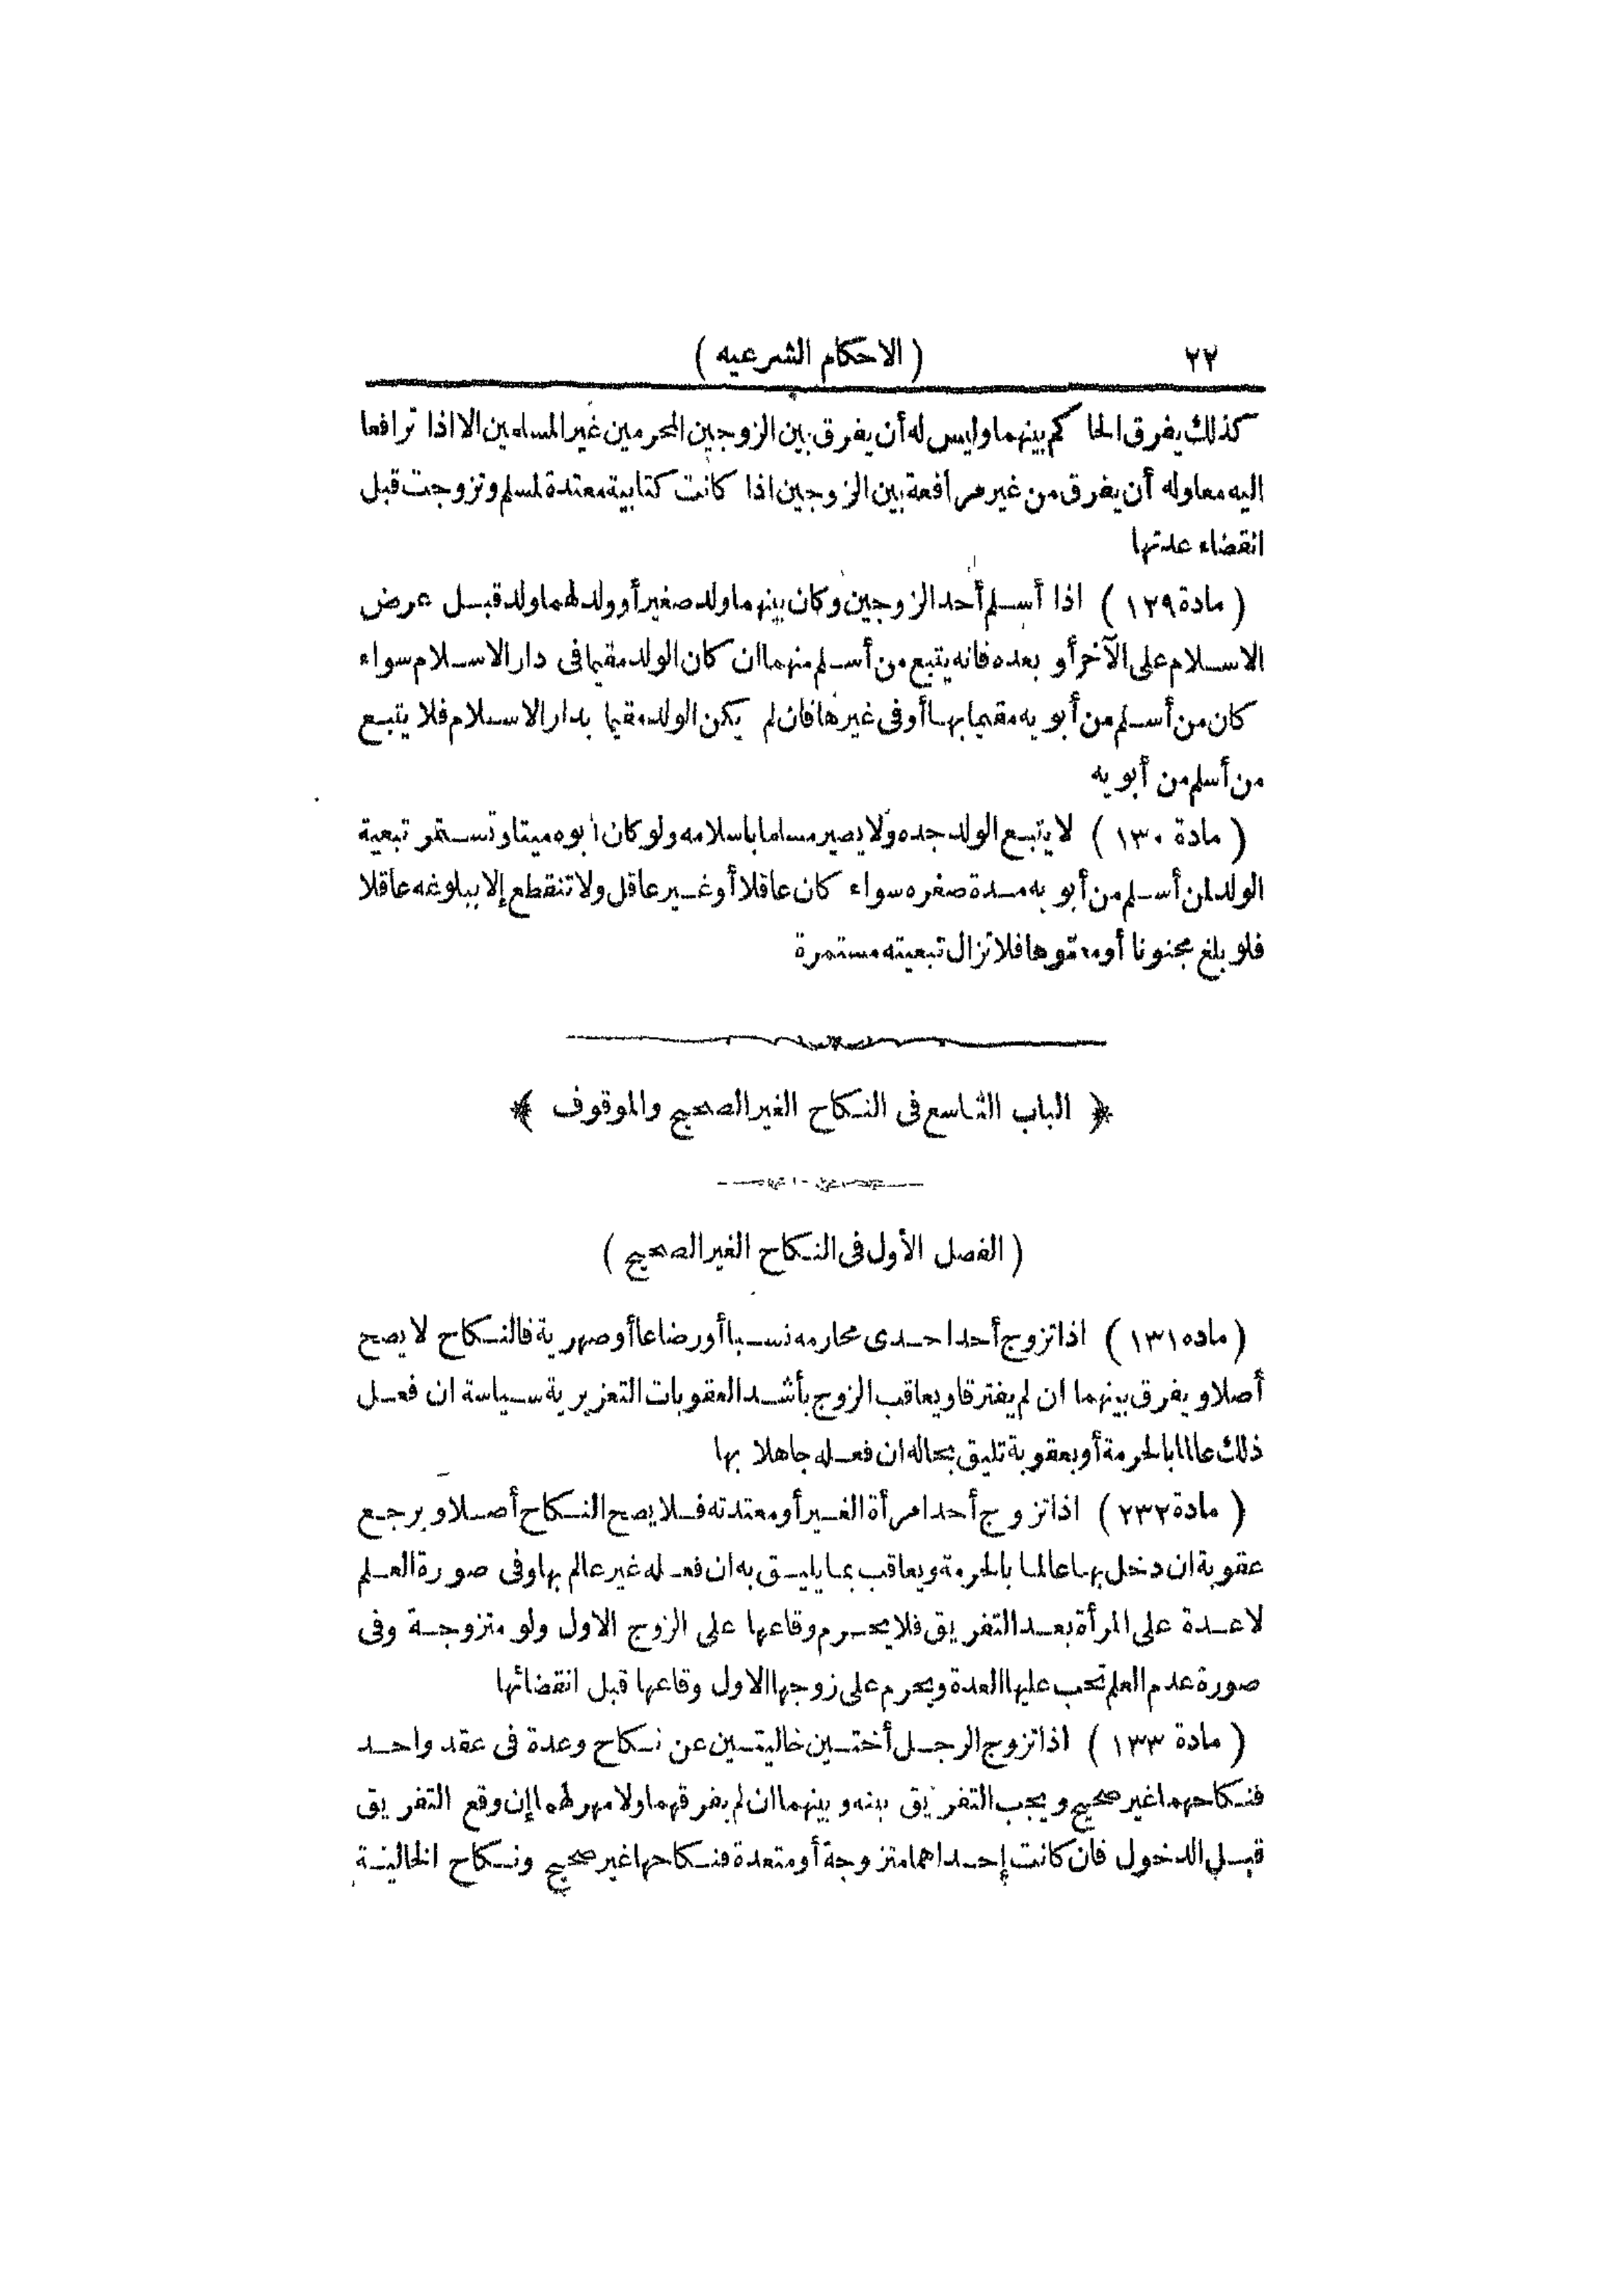 ٢٢ ( الاحكام الشرعيه )
كذلك يفرق الحاكم بينهما وليس له أن يفرق بين الزوجين المحرمين غير المسلمين الا اذا ترافعا
اليه معا وله أن يفرق من غير مرافعة بين الزوجين اذا كانت كتابية معتدة لمسلم وتزوجت قبل
انقضاء عدتها
( مادة ١٢٩ ) اذا أسلم أحد الزوجين وكان بينهما ولد صغير أو ولد لهما ولد قبل عرض
الاسلام على الآخر أو بعده فانه يتبع من أسلم منهما ان كان الولد مقيما فى دار الاسلام سواء
كان من أسلم من أبويه مقيما بها أو فى غيرها فان لم يكن الولد مقيما بدار الاسلام فلا يتبع
من أسلم من أبويه
( مادة ١٣٠ ) لا يتبع الولد جده ولا يصير مسلما باسلامه ولو كان أبوه ميتا وتستمر تبعية
الولد لمن أسلم من أبويه مدة صغره سواء كان عاقلا أو غير عاقل ولا تنقطع إلا ببلوغه عاقلا
فلو بلغ مجنونا أو معتوها فلا تزال تبعيته مستمرة
﴿ الباب التاسع فى النكاح الغير الصحيح والموقوف ﴾
( الفصل الأول فى النكاح الغير الصحيح )
( ماده ١٣١ ) اذا تزوج أحد احدى محارمه نسبا أو رضاعا أو صهرية فالنكاح لا يصح
أصلا ويفرق بينهما ان لم يفترقا ويعاقب الزوج بأشد العقوبات التعزيرية سياسة ان فعل
ذلك عالما بالحرمة أو بعقوبة تليق بحاله ان فعله جاهلا بها
( مادة ٢٣٢ ) اذا تزوج أحد امرأة الغير أو معتدته فلا يصح النكاح أصلا و يرجع
عقوبة ان دخل بها عالما بالحرمة ويعاقب بما يليق به ان فعله غير عالم بها وفى صورة العلم
لا عدة على المرأة بعد التفريق فلا يحرم وقاعها على الزوج الاول ولو متزوجة وفى
صورة عدم العلم تجب عليها العدة ويحرم على زوجها الاول وقاعها قبل انقضائها
( مادة ١٣٣ ) اذا تزوج الرجل أختين خاليتين عن نكاح وعدة فى عقد واحد
فنكاحهما غير صحيح ويجب التفريق بينه وبينهما ان لم يفرقهما ولا مهر لهما إن وقع التفريق
قبل الدخول فان كانت إحداهما متزوجة أو متعدة فنكاحها غير صحيح ونكاح الخالية